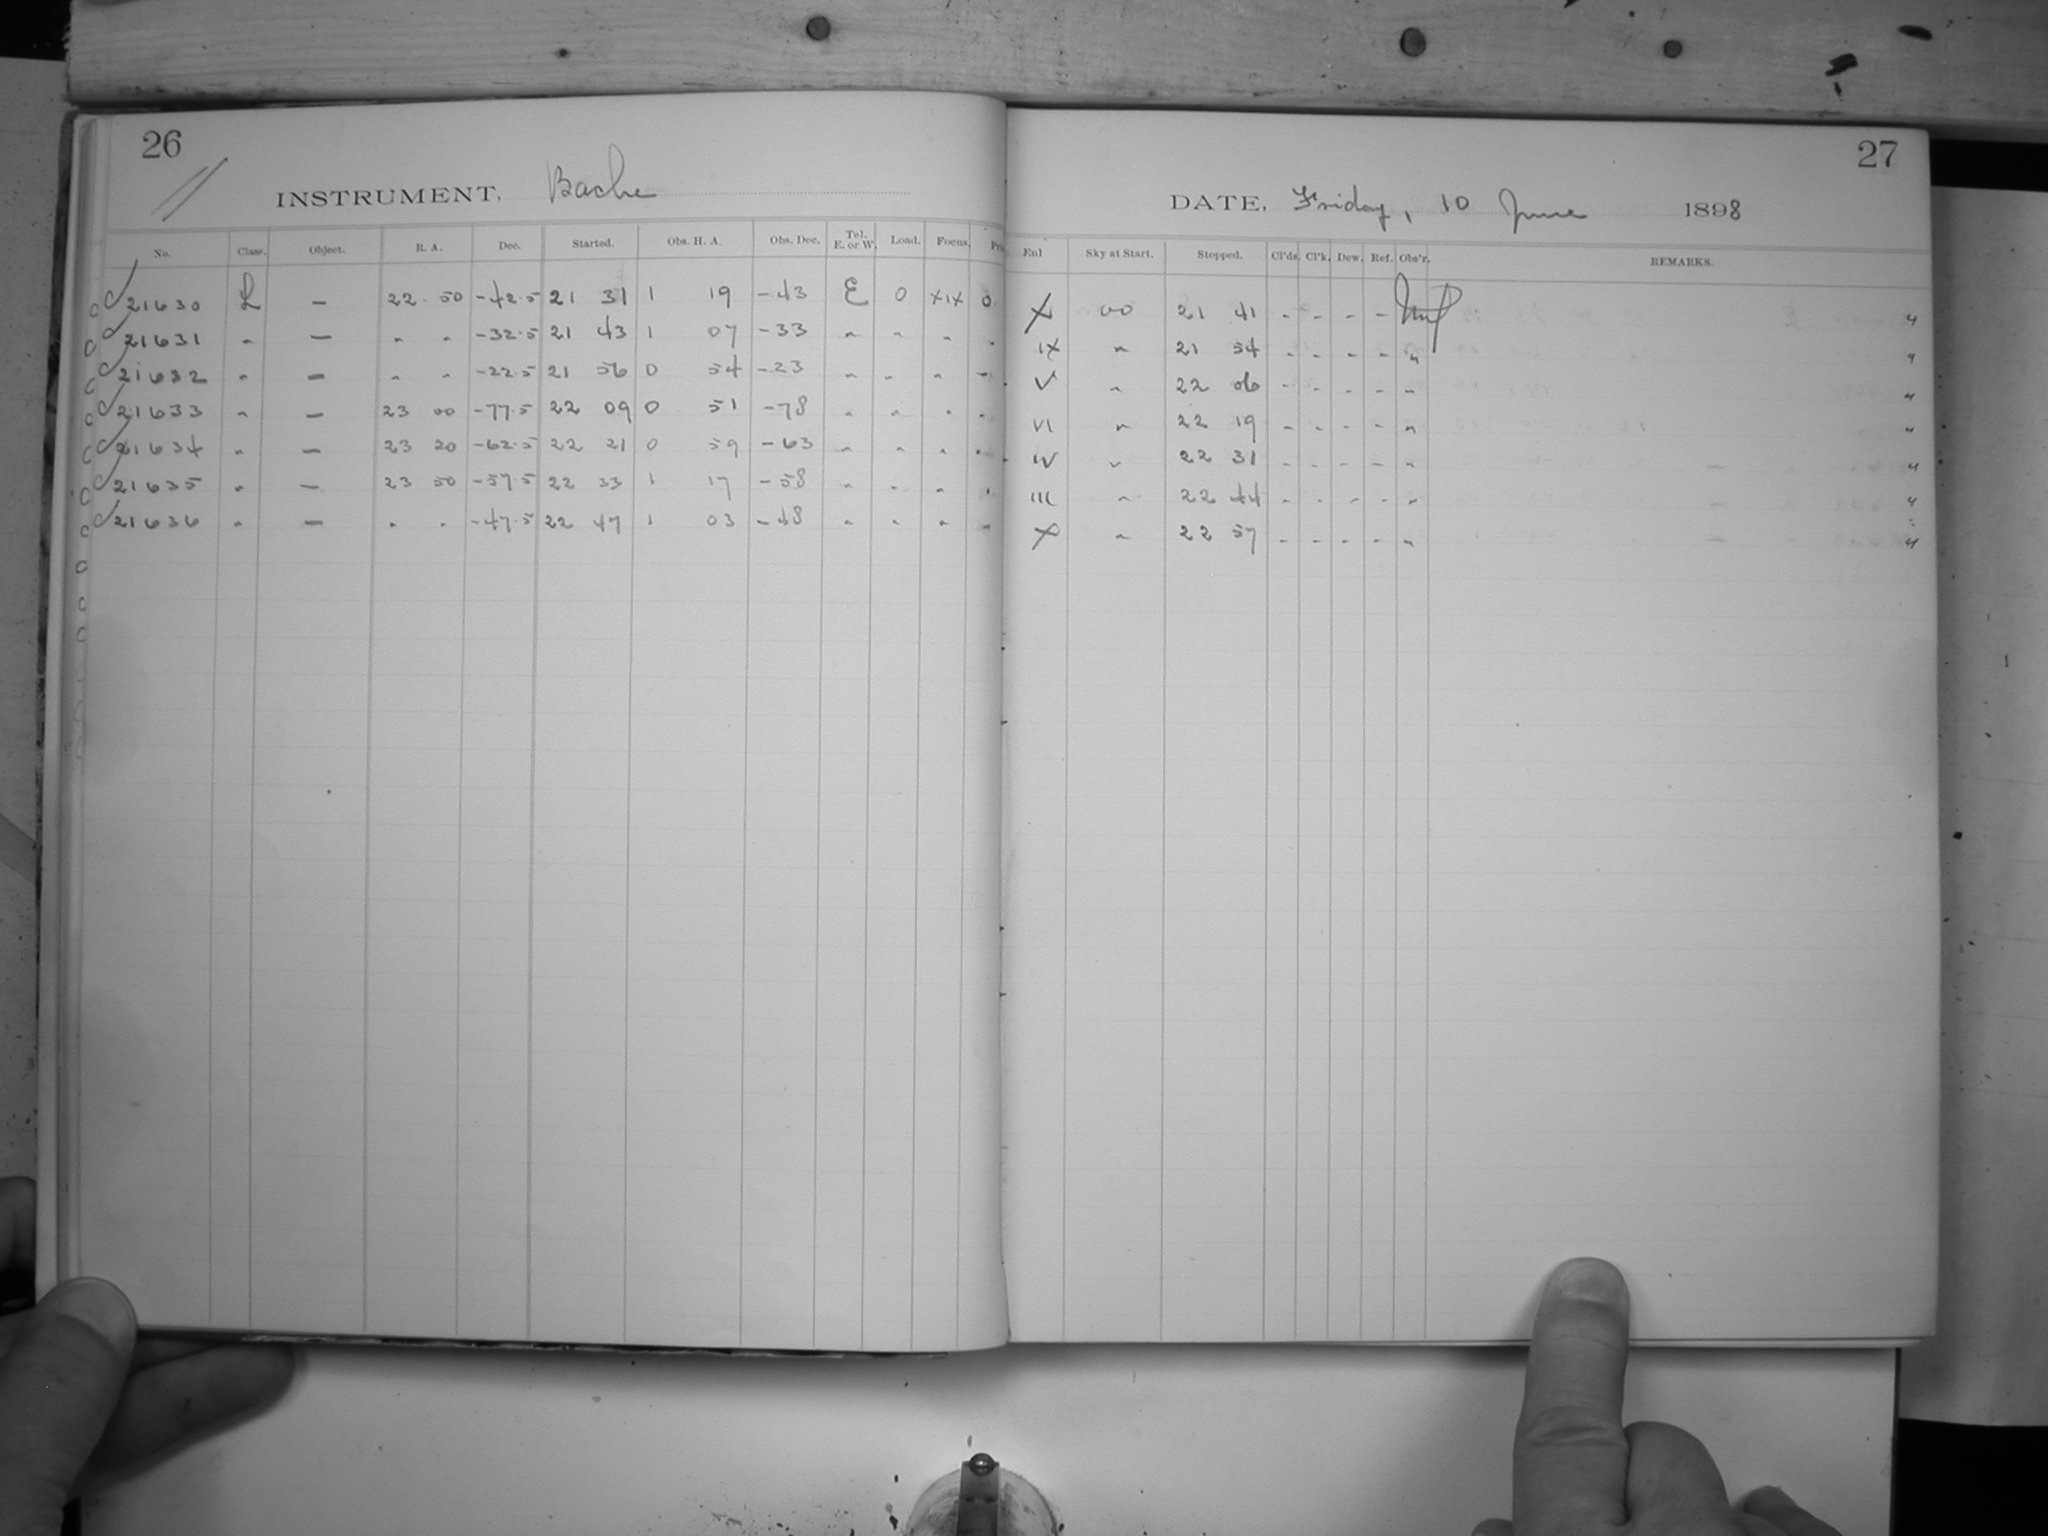 26
INSTRUMENT, Bache
No. Class. Object. R. A. Dec. Started. Obs. H. A. Obs. Dec. Tel. E. or W. Load. Focus.
21630 L — 22 50 -42.5 21 31 1 19 -43 E 0 XIX 0
21631 " — " " -32.5 21 43 1 07 -33 " " " "
21632 " — " " -22.5 21 56 0 54 -23 " " " "
21633 " — 23 00 -77.5 22 09 0 51 -78 " " " "
21634 " — 23 20 -62.5 22 21 0 59 -63 " " " "
21635 " — 23 50 -57.5 22 33 1 17 -58 " " " "
21636 " — " " -47.5 22 47 1 03 -48 " " " "
27
DATE, Friday, 10 June 1898
Enl Sky at Start. Stopped. Cl'ds. Cl'k. Dew. Ref. Obs'r. REMARKS.
X 00 21 41 - - - - 4
IX " 21 54 - - - - " 4
V " 22 06 - - - - " 4
VI " 22 19 - - - - " 4
IV " 22 31 - - - - " 4
III " 22 44 - - - - " 4
X " 22 57 - - - - " 4